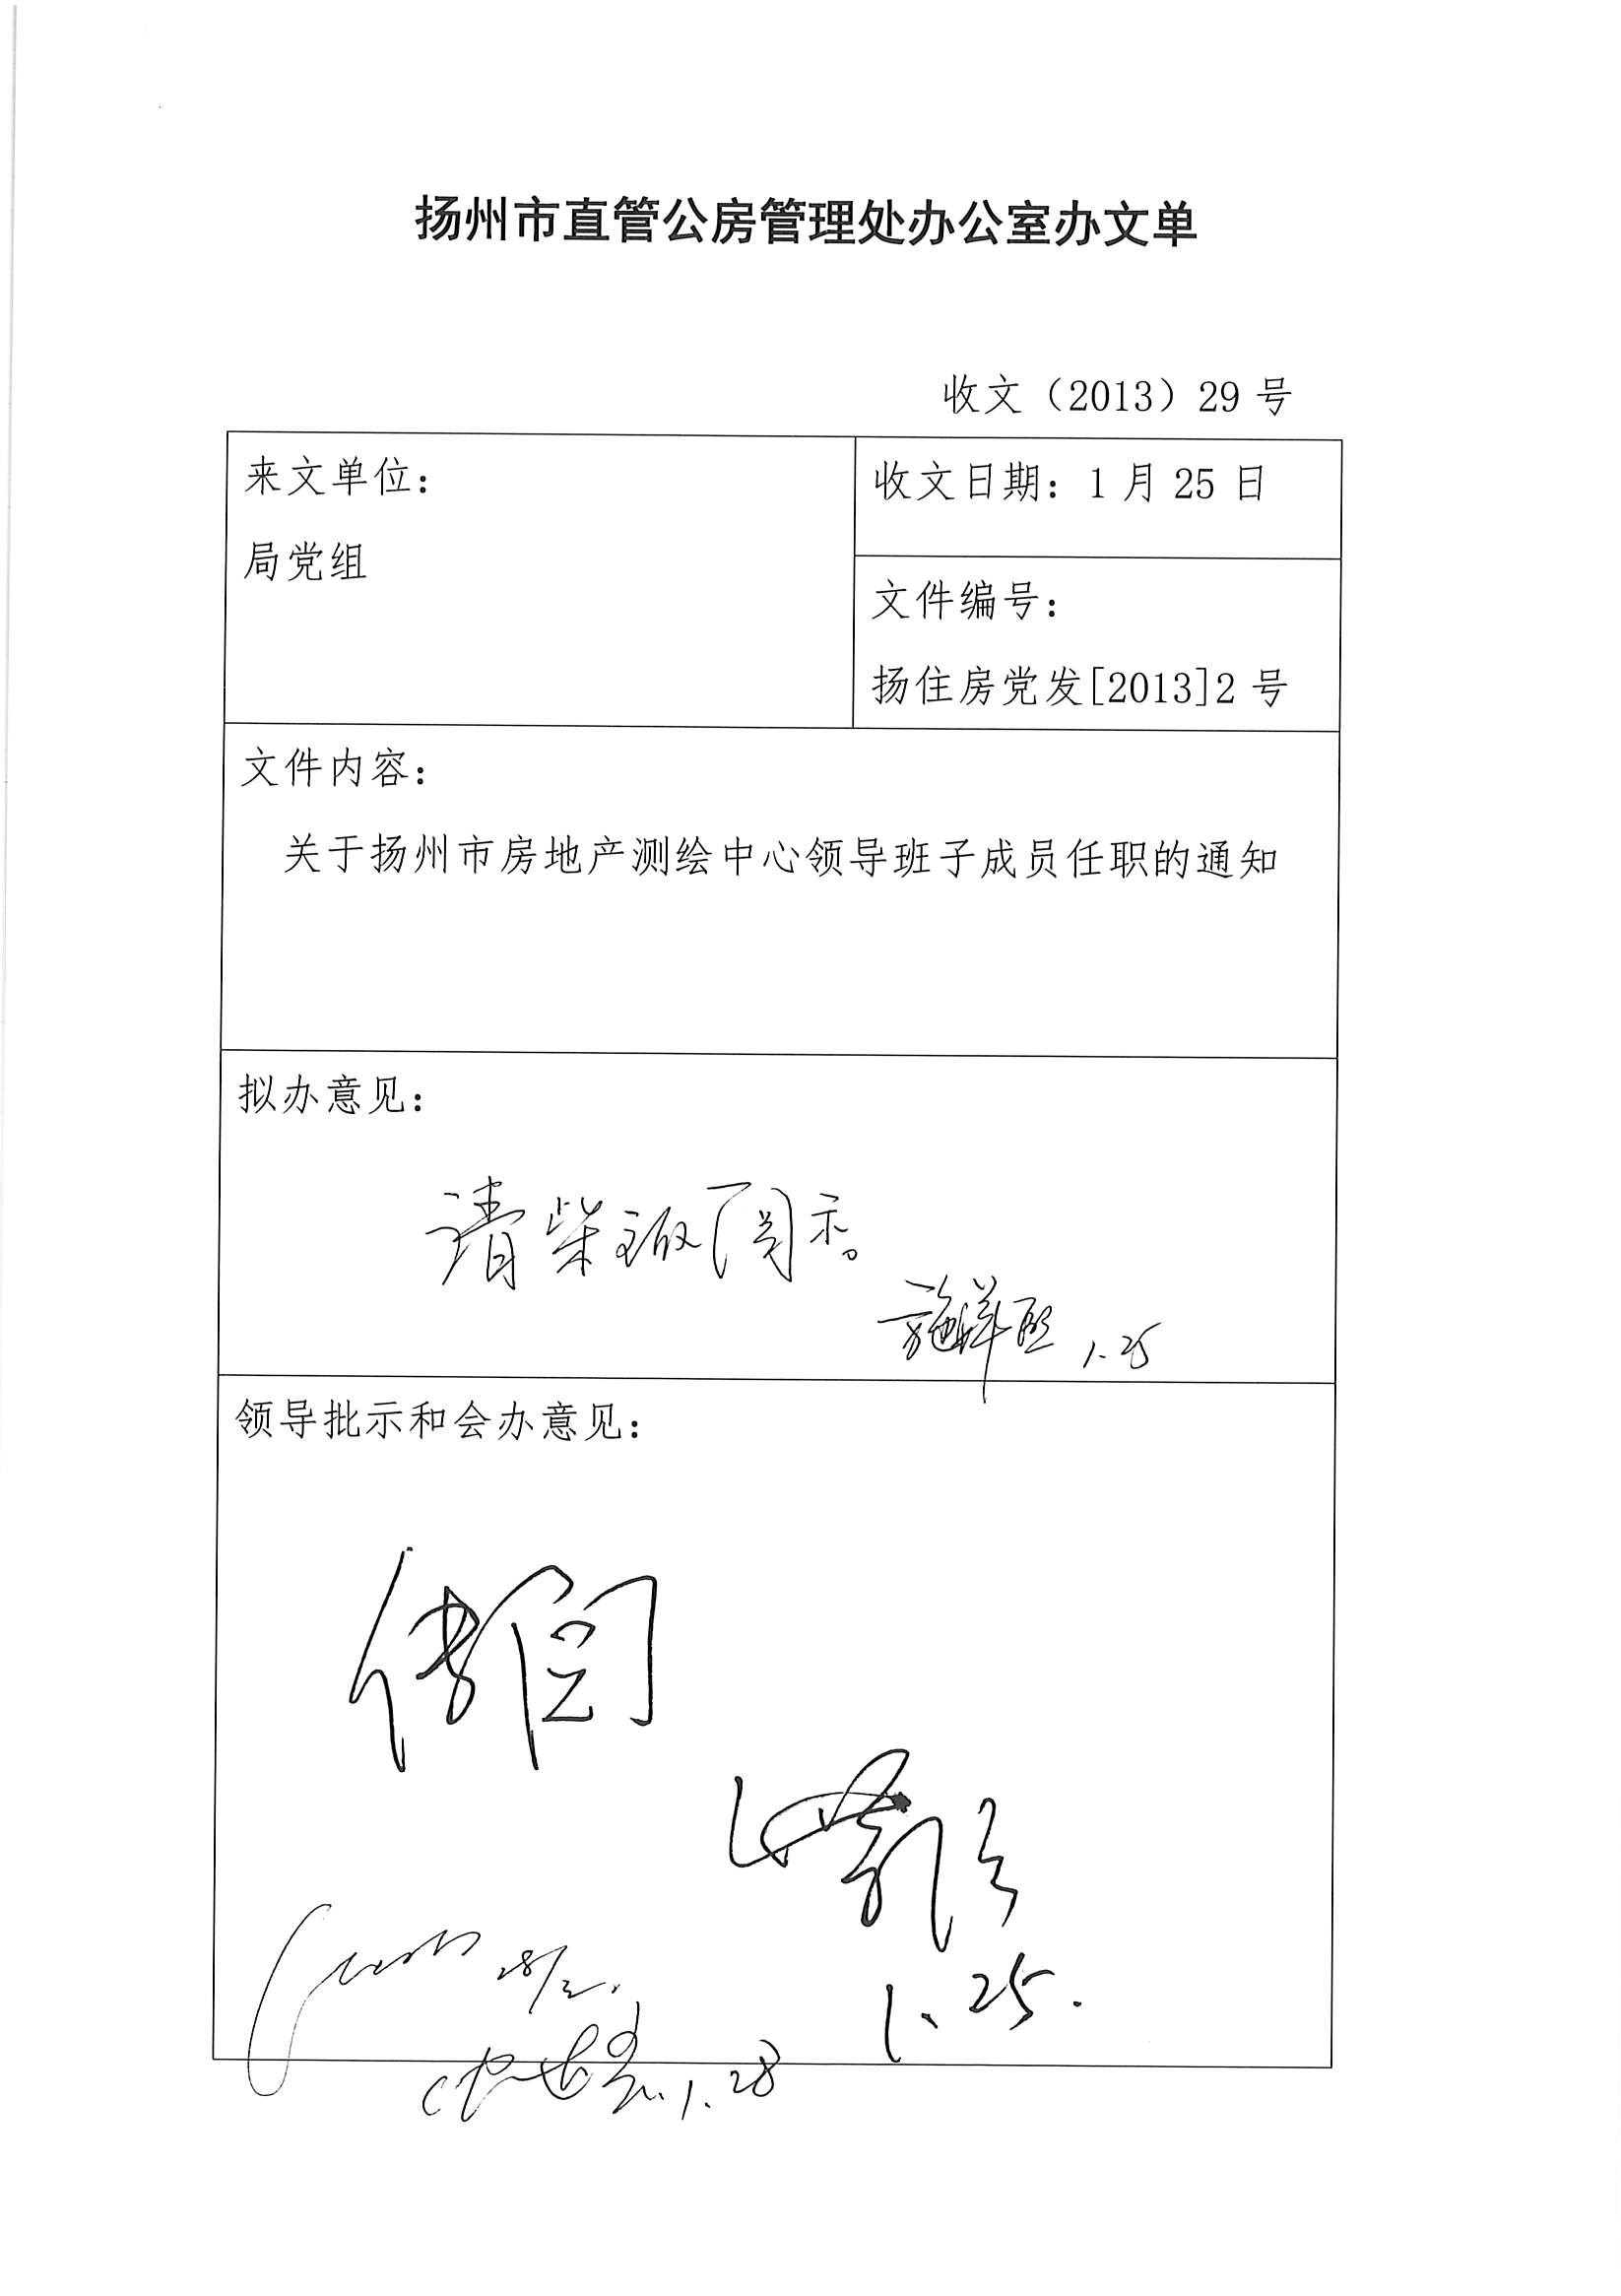 扬州市直管公房管理处办公室办文单
收文（2013）29 号
来文单位：
局党组
收文日期：1 月 25 日
文件编号：
扬住房党发[2013]2 号
文件内容：
关于扬州市房地产测绘中心领导班子成员任职的通知
拟办意见：
请柴主阅示。
1.25
领导批示和会办意见：
传阅
1.25.
1.28